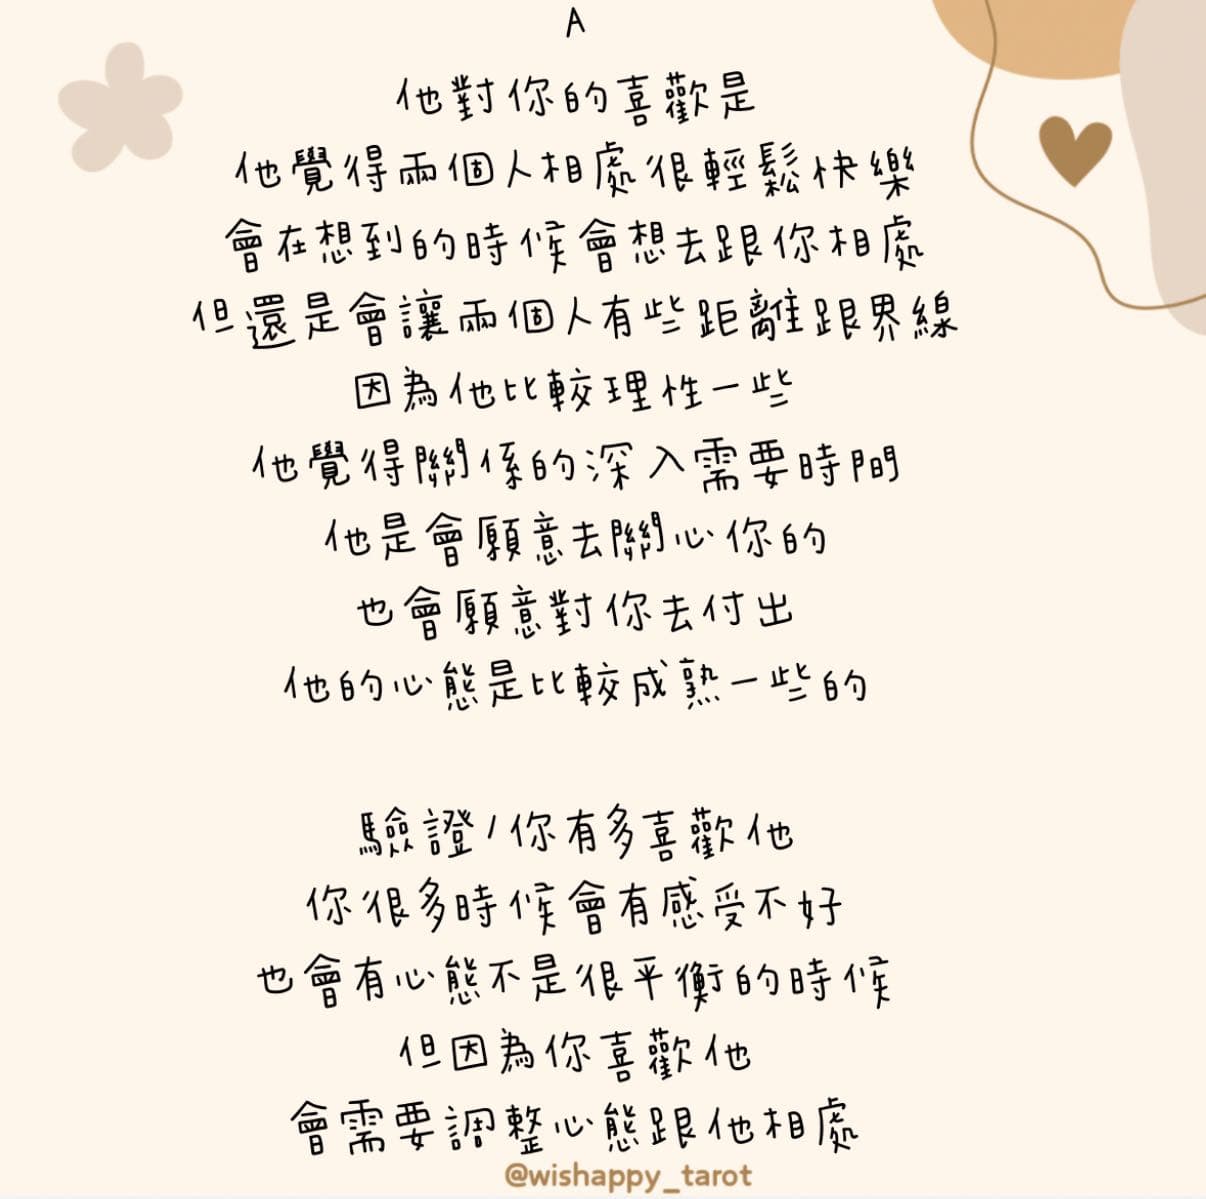 A
他對你的喜歡是
他覺得兩個人相處很輕鬆快樂
會在想到的時候會想去跟你相處
但還是會讓兩個人有些距離跟界線
因為他比較理性一些
他覺得關係的深入需要時間
他是會願意去關心你的
也會願意對你去付出
他的心態是比較成熟一些的
驗證/你有多喜歡他
你很多時候會有感受不好
也會有心態不是很平衡的時候
但因為你喜歡他
會需要調整心態跟他相處
@wishappy_tarot